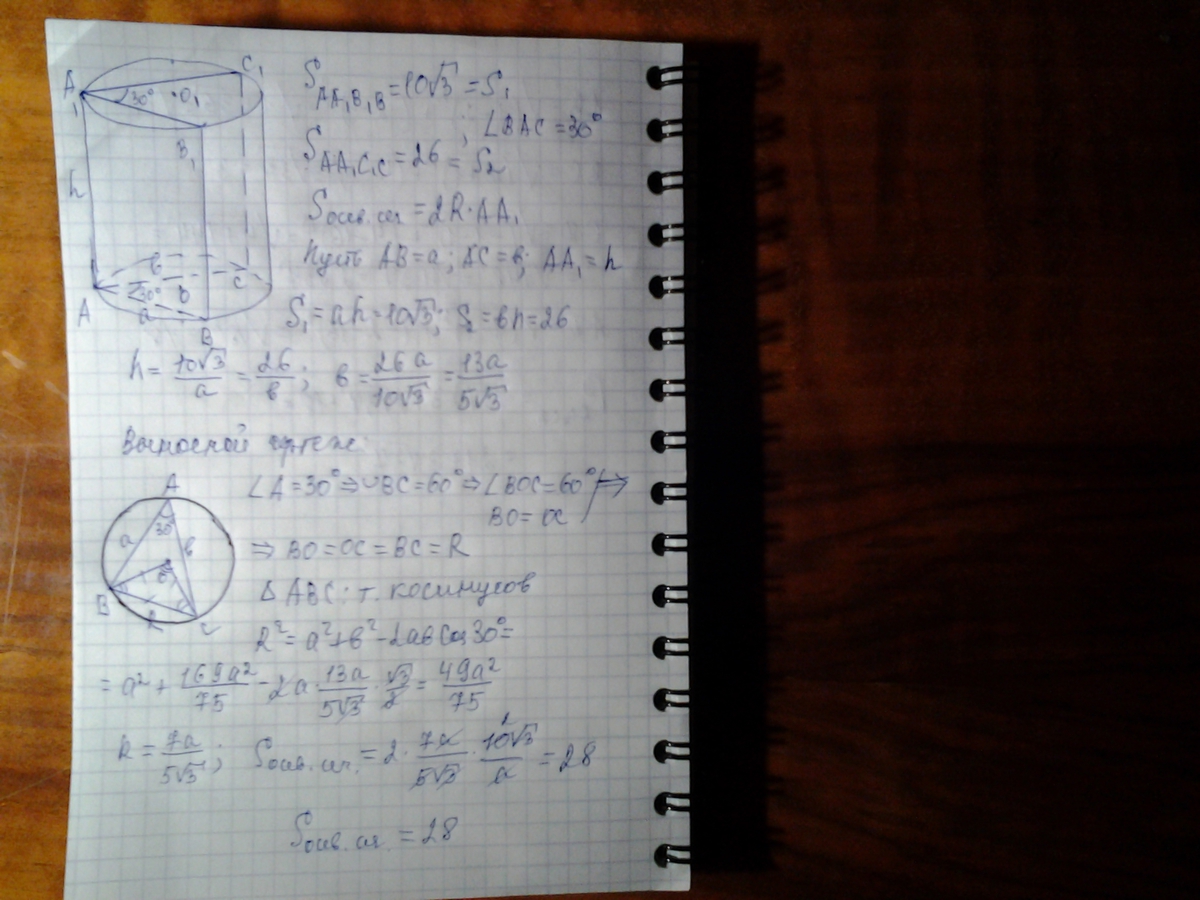 A₁ C₁ 30° O₁ B₁ h
A 30° a b O C B
S_AA₁B₁B = 10√3 = S₁
; ∠BAC = 30°
S_AA₁C₁C = 26 = S₂
Sосев.сеч = 2R·AA₁
Пусть AB = a; AC = b; AA₁ = h
S₁ = ah = 10√3; S₂ = bh = 26
h = 10√3/a = 26/b; b = 26a/10√3 = 13a/5√3
Выносной чертеж:
A 30° a b O B R C
∠A = 30° ⇒ ◡BC = 60° ⇒ ∠BOC = 60° ⇒
BO = OC
⇒ BO = OC = BC = R
Δ ABC: т. косинусов
R² = a² + b² - 2ab cos 30° =
= a² + 169a²/75 - 2a · 13a/5√3 · √3/2 = 49a²/75
R = 7a/5√3; Sосев.сеч. = 2 · 7a/5√3 · 10√3/a = 28
Sосев.сеч. = 28